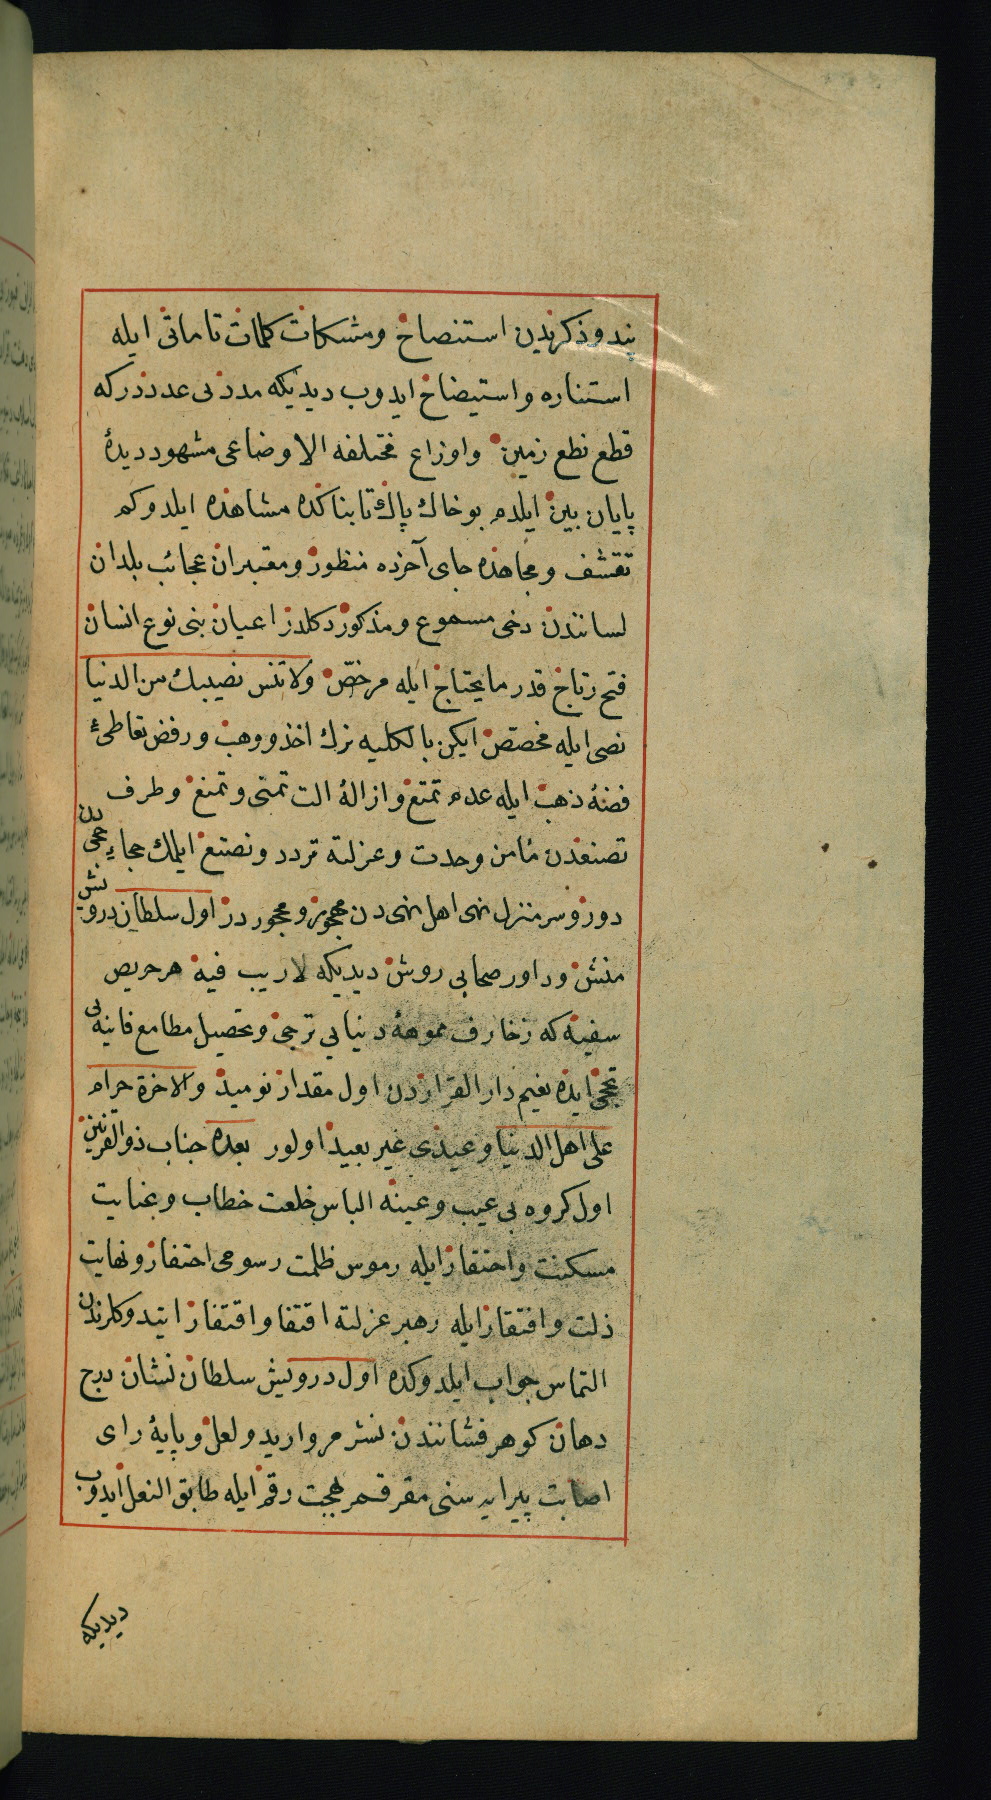 پند و ذكرندن استنصاح ومشكات كلمات تاماتی ایله
استناره واستیضاح ایدوب دیدیكه مدد بی عدددركه
قطع نطع زمین واوزاع مختلفه الاوضاعی مشهود دیدهٔ
پایان بین ایلدم بو خاك پاك تابناكده مشاهده ایلدوكم
تقشف ومجاهده جای آخرده منظور ومعتبران عجائب بلدان
لسانندن دخی مسموع ومذكور دكلدر اعیان بنی نوع انسان
فتح رتاج قدر مایحتاج ایله مرخص ولا تنس نصیبك من الدنیا
نصی ایله مختص ایكن بالكلیه ترك اخذ ووهب ورفض تعاطیء
فضه ذهب ایله عدم تمتع وازالهٔ الت تمتی وتمنع وطرف
تصنعدن مأمن وحدت وعزلته تردد وتصنع ایلمك حجاء حجیدن
دور وسرمنزل نهی اهل نهی دن مهجور ومجور در اول سلطان درویش
منش وداور صحابی روش دیدیكه لاریب فیه هر حریص
سفینه كه زخارف مموههٔ دنیایی ترجی وتحصیل مطامع فانیه یی
تحجی ایده نعیم دارالقراردن اول مقدار نومید والاخرة حرام
علی اهل الدنیا وعیدی غیر بعید اولور بعده جناب ذوالقرنین
اول كروه بی عیب وعینه الباس خلعت خطاب وبغایت
مسكنت واحتقار ایله رموس ظلمت رسومی احتفار ونهایت
ذلت وافتقار ایله رهبر عزلته اقتفا واقتفار ایتدوكلرندن
التماس جواب ایلدوكده اول درویش سلطان نشان درج
دهان كوهر فشانندن نشر مروارید ولعل وپایهٔ رای
اصابت پیرایه سنی مقر قمر لهجت رقم ایله طابق النعل ایدوب
دیدیكه